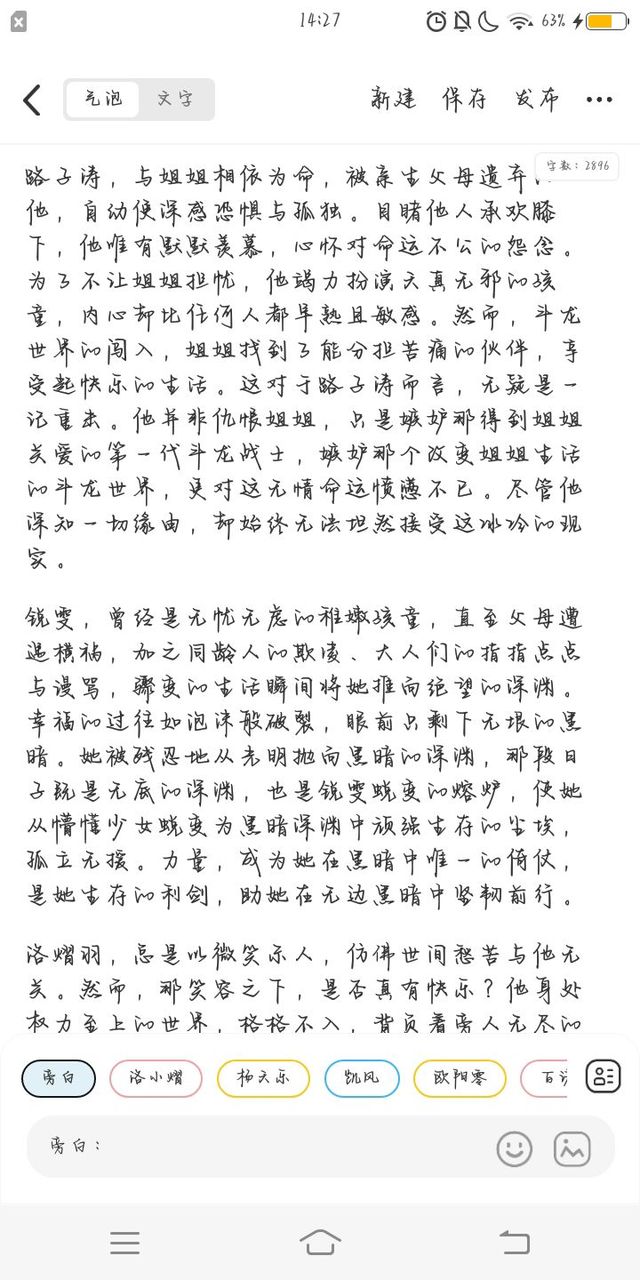 14:27
63%
气泡
文字
新建
保存
发布
字数：2896
路子涛，与姐姐相依为命，被亲生父母遗弃
他，自幼便深感恐惧与孤独。目睹他人承欢膝
下，他唯有默默羡慕，心怀对命运不公的怨念。
为了不让姐姐担忧，他竭力扮演天真无邪的孩
童，内心却比任何人都早熟且敏感。然而，斗龙
世界的闯入，姐姐找到了能分担苦痛的伙伴，享
受起快乐的生活。这对于路子涛而言，无疑是一
记重击。他并非仇恨姐姐，只是嫉妒那得到姐姐
关爱的第一代斗龙战士，嫉妒那个改变姐姐生活
的斗龙世界，更对这无情命运愤懑不已。尽管他
深知一切缘由，却始终无法坦然接受这冰冷的现
实。
锐雯，曾经是无忧无虑的稚嫩孩童，直至父母遭
遇横祸，加之同龄人的欺凌、大人们的指指点点
与谩骂，骤变的生活瞬间将她推向绝望的深渊。
幸福的过往如泡沫般破裂，眼前只剩下无垠的黑
暗。她被残忍地从光明抛向黑暗的深渊，那段日
子既是无底的深渊，也是锐雯蜕变的熔炉，使她
从懵懂少女蜕变为黑暗深渊中顽强生存的尘埃，
孤立无援。力量，成为她在黑暗中唯一的倚仗，
是她生存的利剑，助她在无边黑暗中坚韧前行。
洛熠羽，总是以微笑示人，仿佛世间愁苦与他无
关。然而，那笑容之下，是否真有快乐？他身处
权力至上的世界，格格不入，背负着旁人无尽的
旁白
洛小熠
杨天乐
凯风
欧阳零
百
旁白：